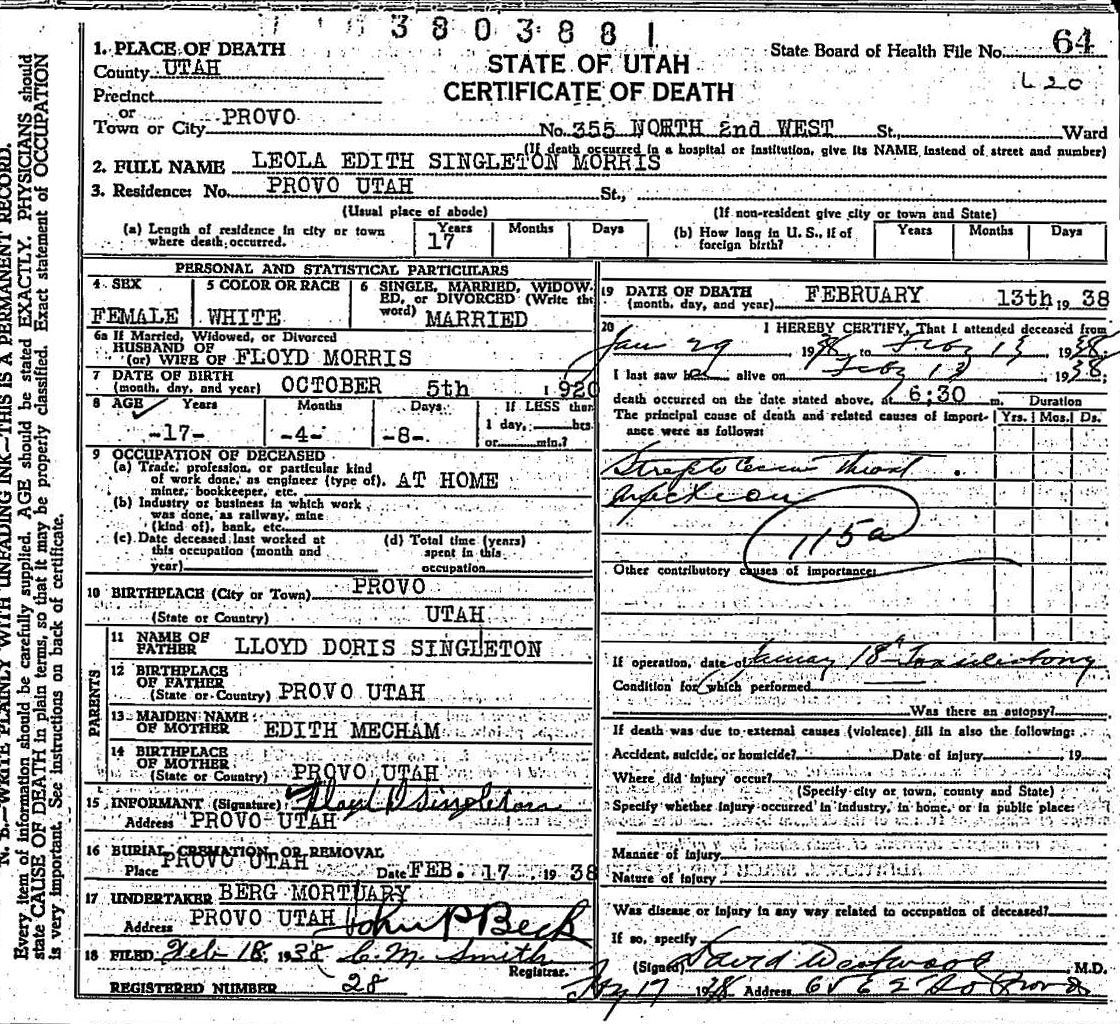 3 8 0 3 8 8 1
1. PLACE OF DEATH
County UTAH
Precinct
or
Town or City PROVO
STATE OF UTAH
CERTIFICATE OF DEATH
State Board of Health File No. 64
No. 355 NORTH 2nd WEST St., Ward
(If death occurred in a hospital or institution, give its NAME instead of street and number)
2. FULL NAME LEOLA EDITH SINGLETON MORRIS
3. Residence: No. PROVO UTAH St.,
(Usual place of abode)
(If non-resident give city or town and State)
(a) Length of residence in city or town where death occurred.
Years Months Days
17
(b) How long in U. S., if of foreign birth?
Years Months Days
PERSONAL AND STATISTICAL PARTICULARS
4 SEX
FEMALE
5 COLOR OR RACE
WHITE
6 SINGLE, MARRIED, WIDOW-
ED, or DIVORCED (Write the
word) MARRIED
6a If Married, Widowed, or Divorced
HUSBAND OF
(or) WIFE OF FLOYD MORRIS
7 DATE OF BIRTH
(month, day, and year) OCTOBER 5th 1920
8 AGE Years Months Days If LESS than
1 day, hrs.
or min.?
-17- -4- -8-
9 OCCUPATION OF DECEASED
(a) Trade, profession, or particular kind
of work done, as engineer (type of), AT HOME
miner, bookkeeper, etc.
(b) Industry or business in which work
was done, as railway, mine
(kind of), bank, etc.
(c) Date deceased last worked at
this occupation (month and
year)
(d) Total time (years)
spent in this
occupation
10 BIRTHPLACE (City or Town) PROVO
(State or Country) UTAH
PARENTS
11 NAME OF
FATHER LLOYD DORIS SINGLETON
12 BIRTHPLACE
OF FATHER
(State or Country) PROVO UTAH
13 MAIDEN NAME
OF MOTHER EDITH MECHAM
14 BIRTHPLACE
OF MOTHER
(State or Country) PROVO UTAH
15 INFORMANT (Signature) Lloyd D Singleton
Address PROVO UTAH
16 BURIAL, CREMATION, OR REMOVAL
Place PROVO UTAH Date FEB. 17 1938
17 UNDERTAKER BERG MORTUARY
Address PROVO UTAH John P Beck
18 FILED Feb 18, 1938 C. M. Smith
Registrar.
REGISTERED NUMBER 28
19 DATE OF DEATH
(month, day, and year) FEBRUARY 13th, 1938
20 I HEREBY CERTIFY, That I attended deceased from
Jan 29 1938 to Feby 13 1938
I last saw her alive on Feby 13 1938;
death occurred on the date stated above, at 6:30 m.
The principal cause of death and related causes of import-
ance were as follows:
Duration
Yrs. Mos. Ds.
Streptococcus throat
infection
115a
Other contributory causes of importance:
If operation, date of January 18th Tonsilectomy
Condition for which performed
Was there an autopsy?
If death was due to external causes (violence) fill in also the following:
Accident, suicide, or homicide? Date of injury , 19
Where did injury occur?
(Specify city or town, county and State)
Specify whether injury occurred in industry, in home, or in public place:
Manner of Injury
Nature of Injury
Was disease or injury in any way related to occupation of deceased?
If so, specify
(Signed) David Westwood M.D.
Feby 17 1938 Address
N. B.—WRITE PLAINLY WITH UNFADING INK—THIS IS A PERMANENT RECORD.
Every item of information should be carefully supplied. AGE should be stated EXACTLY. PHYSICIANS should
state CAUSE OF DEATH in plain terms, so that it may be properly classified. Exact statement of OCCUPATION
is very important. See instructions on back of certificate.